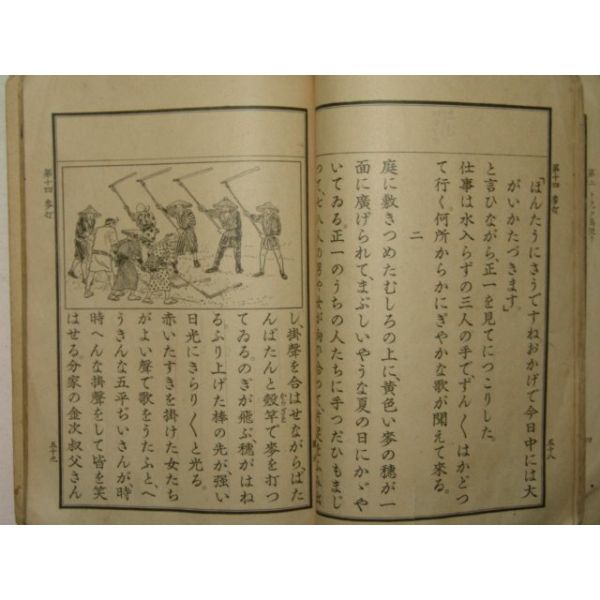 第十四 麥打
五十八
「ほんたうにさうですねおかげで今日中には大
がいかたづきます」
と言ひながら、正一を見てにつこりした。
仕事は水入らずの三人の手で、ずん〳〵はかどつ
て行く。何所からかにぎやかな歌が聞えて來る。
二
庭に敷きつめたむしろの上に、黄色い麥の穗が一
面に廣げられて、まぶしいやうな夏の日にかゞや
いてゐる。正一のうちの人たちに手つだひもまじ
つて、七八人の男や女が向ひ合つて、
第十四 麥打
五十九
し、掛聲を合はせながら、ばた
んばたんと殼竿で麥を打つ
てゐる。のぎが飛ぶ、穗がはね
る。ふり上げた棒の先が、強い
日光にきらり〳〵と光る。
赤いたすきを掛けた女たち
がよい聲で歌をうたふと、へ
うきんな五平ぢいさんが、時
時へんな掛聲をして皆を笑
はせる。分家の金次叔父さん